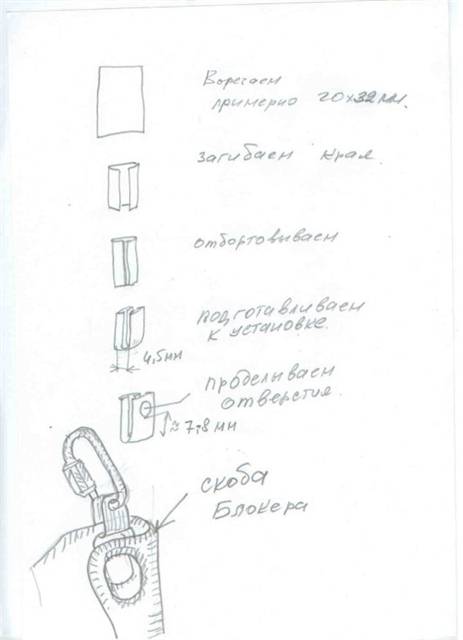 Вырезаем
примерно 20х32мм.
загибаем края.
отбортовываем
подготавливаем
к установке.
4,5мм
проделываем
отверстия.
≈7,8 мм
скоба
Блокера